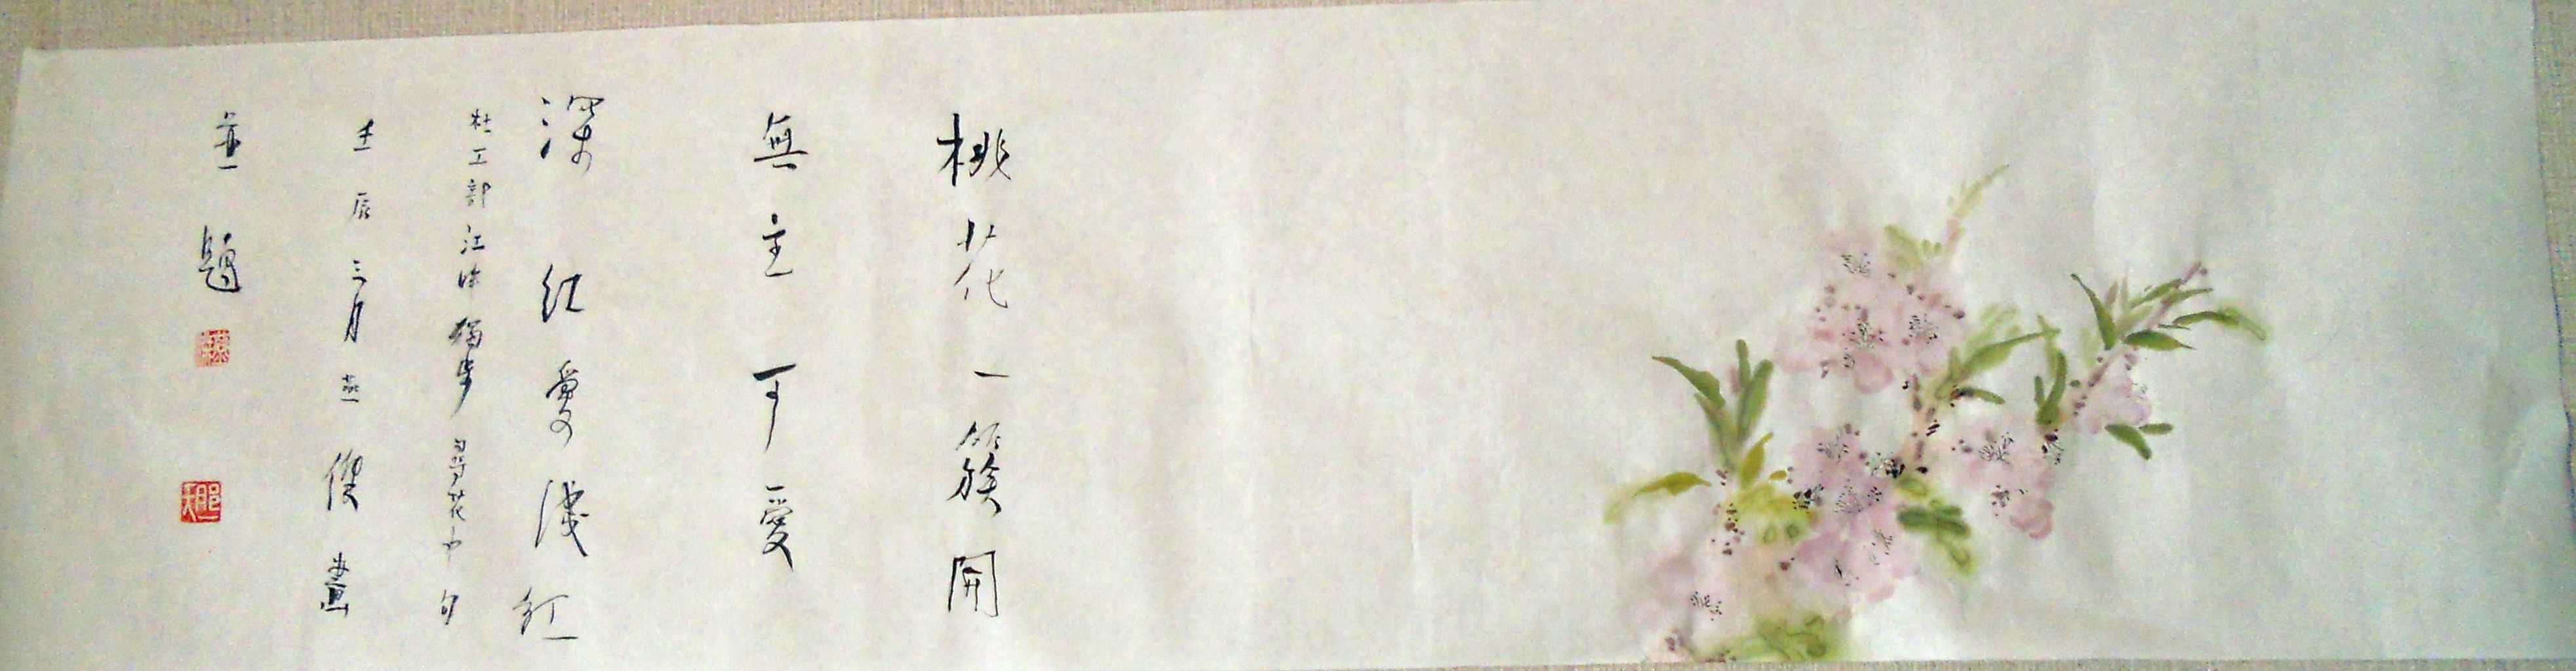 桃花一簇開
無主可愛
深紅愛淺紅
杜工部江畔獨步尋花中句
壬辰三月燕傑畫
並題